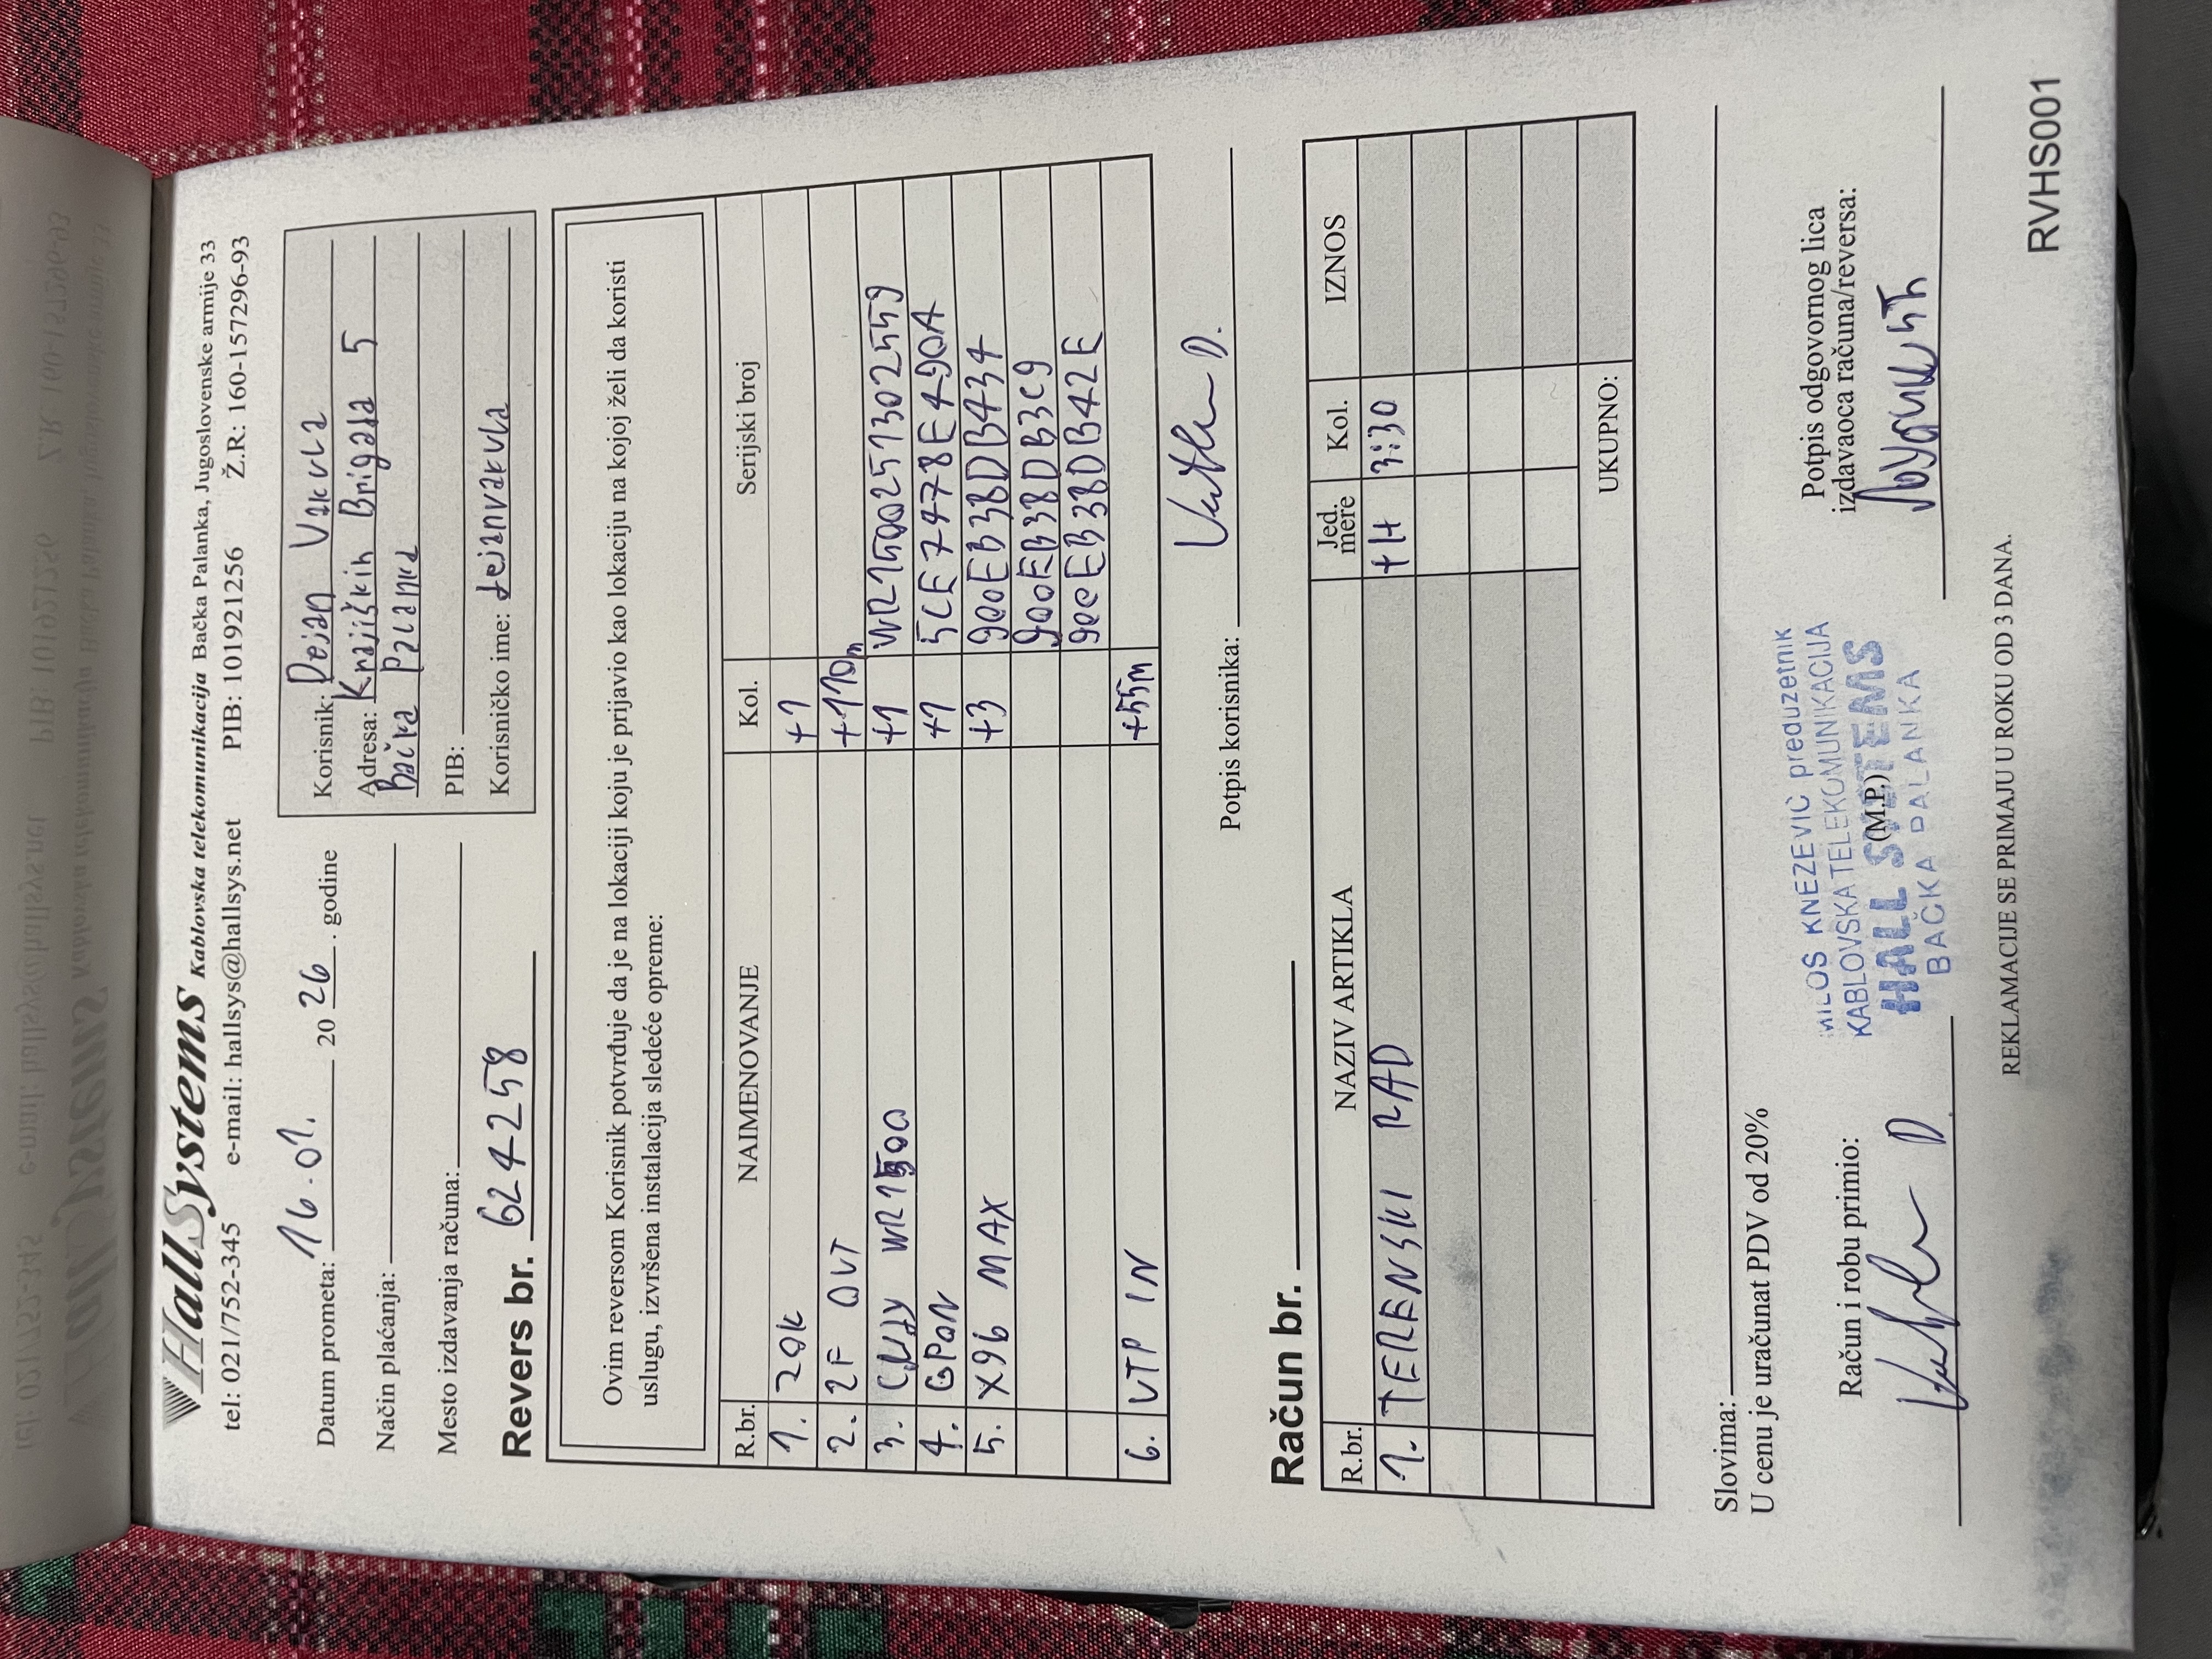 HallSystems Kablovska telekomunikacija Bačka Palanka, Jugoslovenske armije 33
tel: 021/752-345 e-mail: hallsys@hallsys.net PIB: 101921256 Ž.R: 160-157296-93
Datum prometa: 16.01. 20 26. godine
Način plaćanja:
Mesto izdavanja računa:
Korisnik: Dejan Vakula
Adresa: Krajiških Brigada 5
Bačka Palanka
PIB:
Korisničko ime: dejanvakula
Revers br. 624258
Ovim reversom Korisnik potvrđuje da je na lokaciji koju je prijavio kao lokaciju na kojoj želi da koristi
uslugu, izvršena instalacija sledeće opreme:
R.br. NAIMENOVANJE Kol. Serijski broj
1. ZOK +1
2. 2F OUT +110m
3. WR1500 +1 WR1500251302559
4. GPON +1 5CE7478E490A
5. X96 MAX +3 900EB3BDB434
900EB3BDB3C9
900EB3BDB42E
6. UTP IN +55m
Potpis korisnika:
Račun br.
R.br. NAZIV ARTIKLA Jed. mere Kol. IZNOS
1. TERENSKI RAD +H 3:30
UKUPNO:
Slovima:
U cenu je uračunat PDV od 20%
Račun i robu primio:
MILOS KNEZEVIC preduzetnik
KABLOVSKA TELEKOMUNIKACIJA
HALL SYSTEMS
BAČKA PALANKA
(M.P.)
Potpis odgovornog lica
izdavaoca računa/reversa:
REKLAMACIJE SE PRIMAJU U ROKU OD 3 DANA.
RVHS001